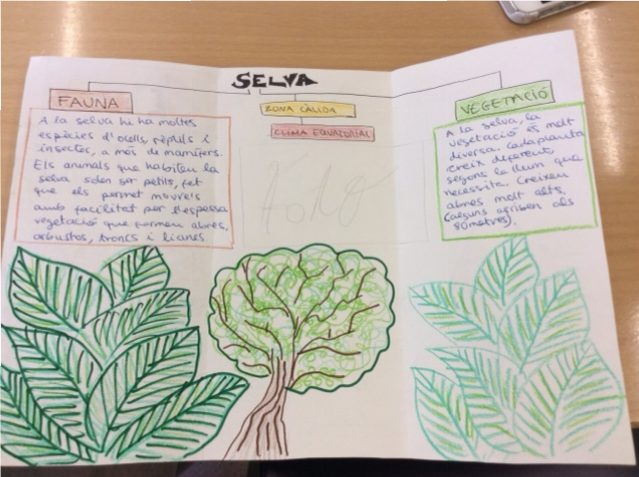 SELVA
FAUNA
A la selva hi ha moltes
espècies d'ocells, rèptils i
insectes, a més de mamífers.
Els animals que habiten la
selva solen ser petits, fet
que els permet moure's
amb facilitat per l'espessa
vegetació que formen abres,
arbustos, troncs i lianes.
ZONA CÀLIDA
CLIMA EQUATORIAL
Foto
VEGETACIÓ
A la selva, la
vegetació és molt
diversa. Cada planta
creix diferent,
segons la llum que
necessita. Creixen
abres molt alts.
(alguns arriben als
80 metres).